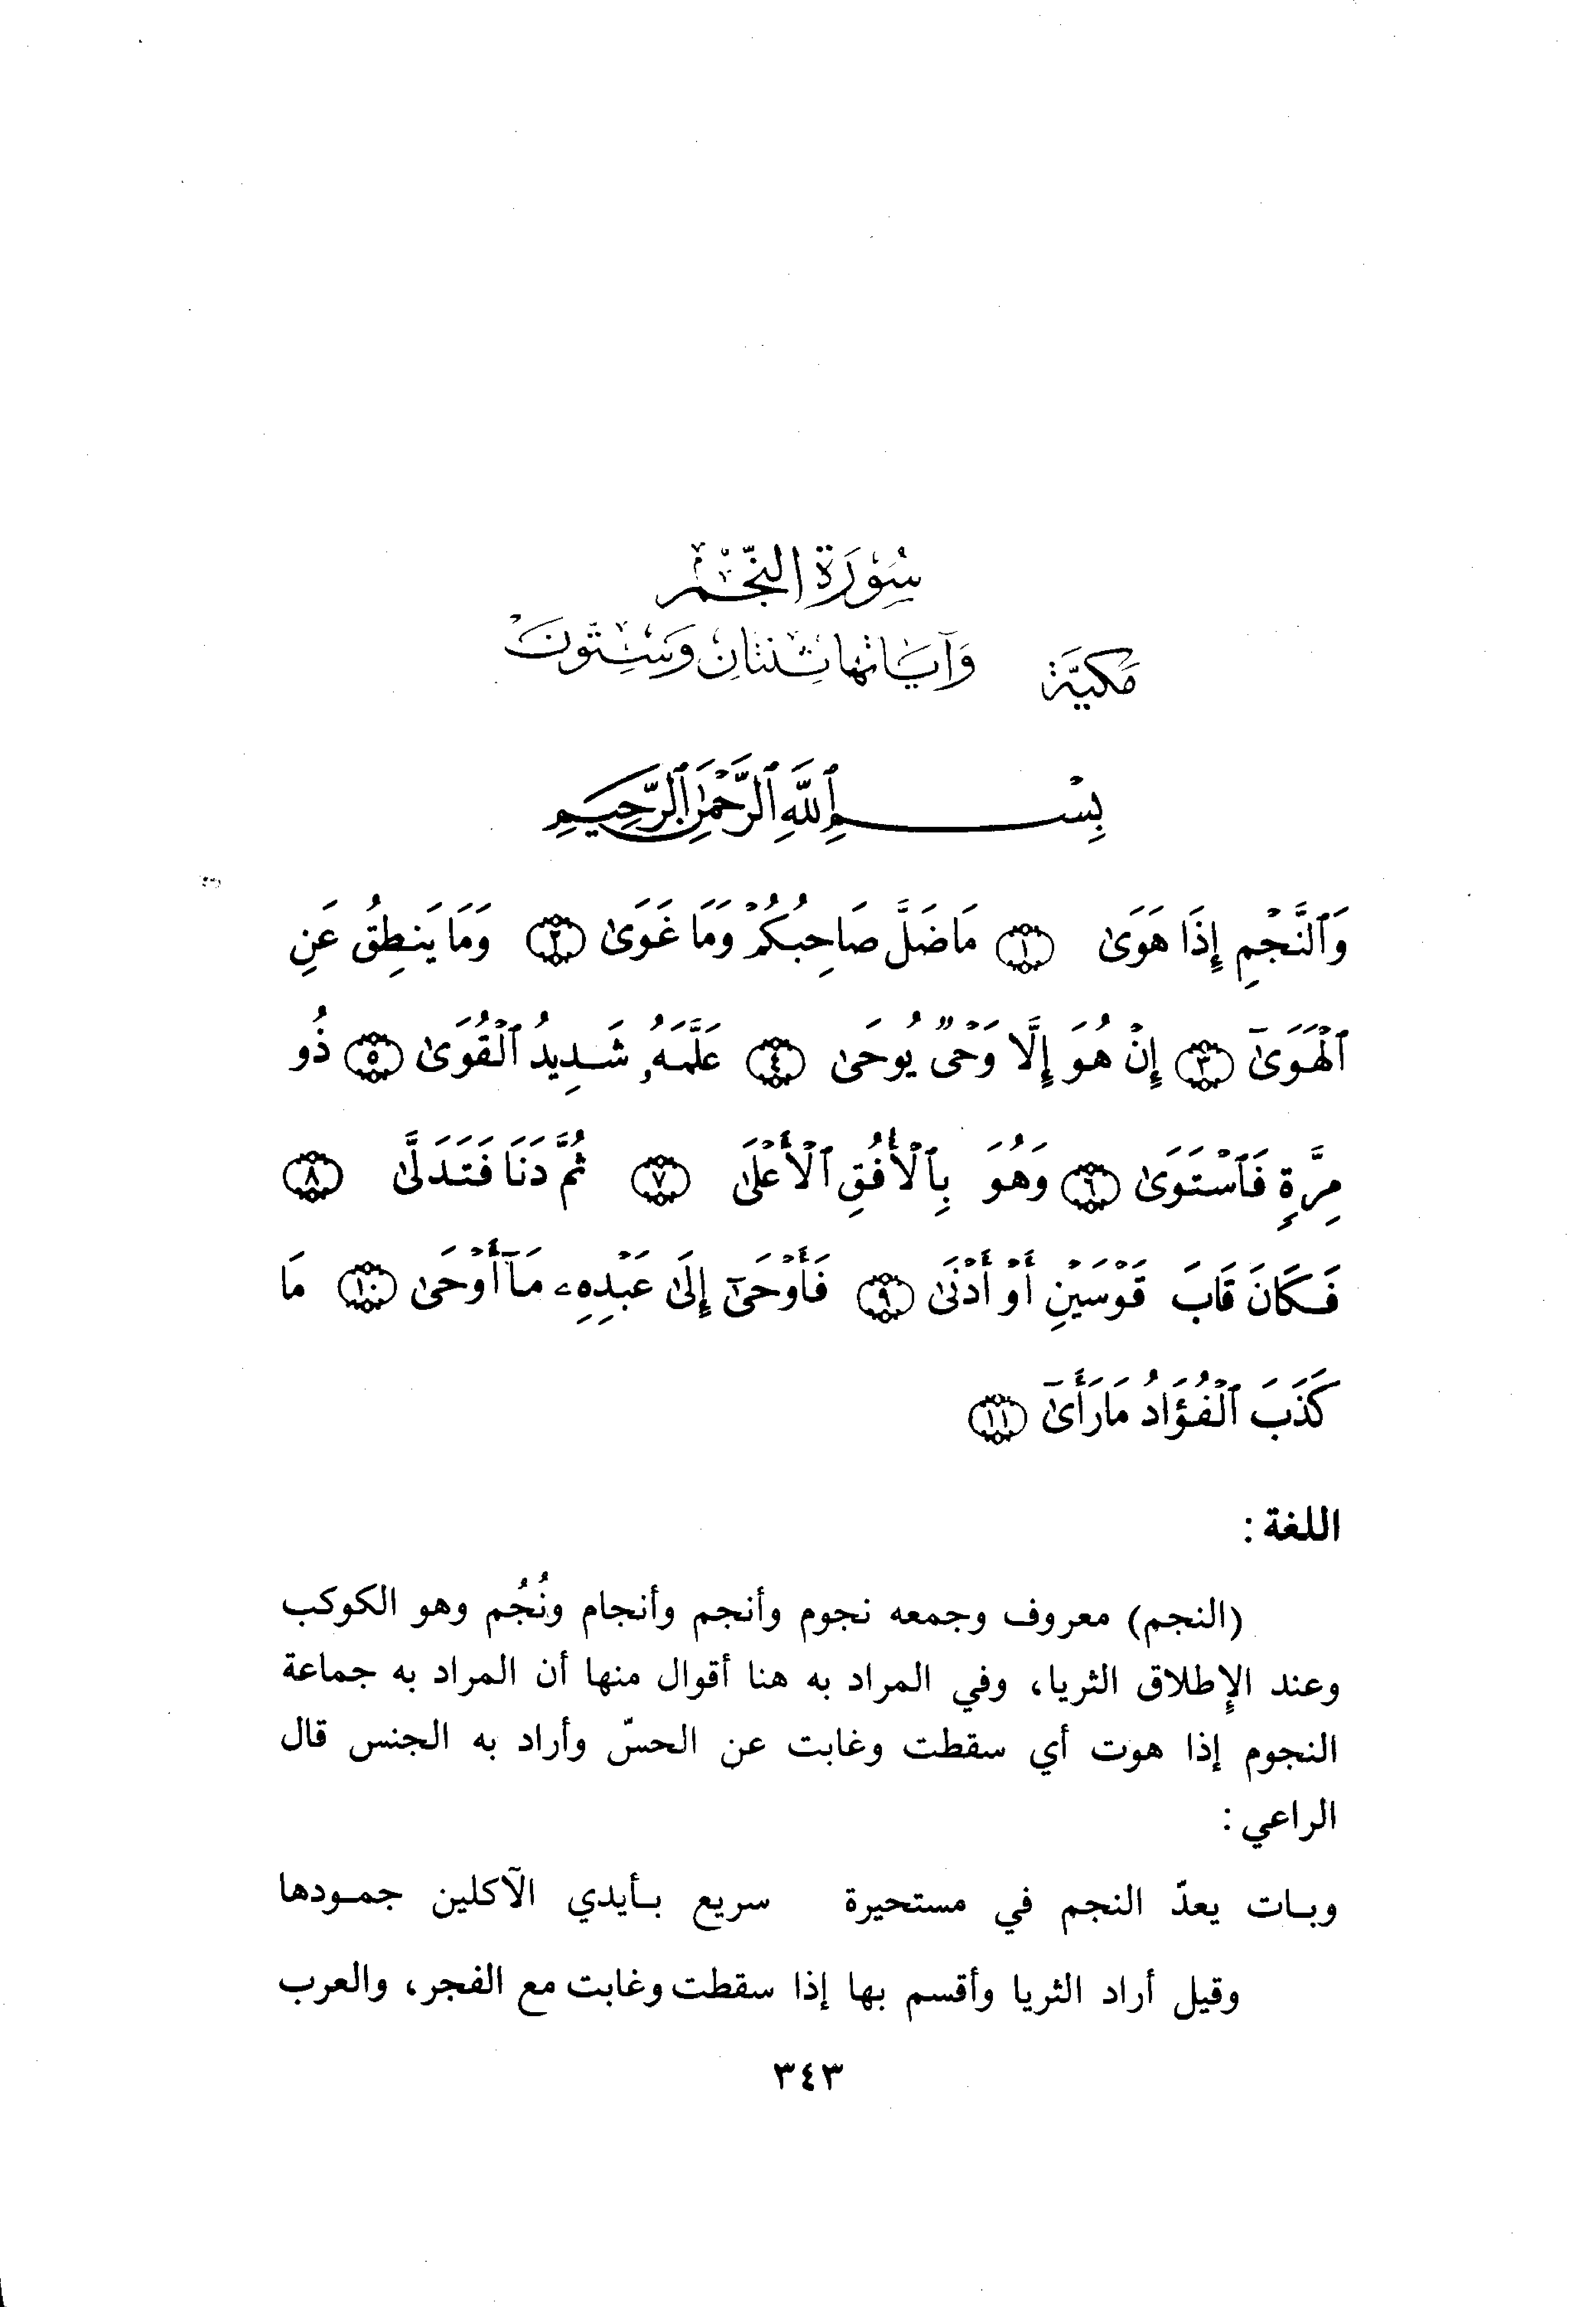 سُورَة النّجْم
مَكيَّة وَآيَاتهَا ثِنْتَانِ وَسِتُّونَ
بِسْمِ ٱللَّهِ ٱلرَّحْمَٰنِ ٱلرَّحِيمِ
وَٱلنَّجْمِ إِذَا هَوَىٰ ١ مَا ضَلَّ صَاحِبُكُمْ وَمَا غَوَىٰ ٢ وَمَا يَنطِقُ عَنِ
ٱلْهَوَىٰٓ ٣ إِنْ هُوَ إِلَّا وَحْىٌ يُوحَىٰ ٤ عَلَّمَهُۥ شَدِيدُ ٱلْقُوَىٰ ٥ ذُو
مِرَّةٍ فَٱسْتَوَىٰ ٦ وَهُوَ بِٱلْأُفُقِ ٱلْأَعْلَىٰ ٧ ثُمَّ دَنَا فَتَدَلَّىٰ ٨
فَكَانَ قَابَ قَوْسَيْنِ أَوْ أَدْنَىٰ ٩ فَأَوْحَىٰٓ إِلَىٰ عَبْدِهِۦ مَآ أَوْحَىٰ ١٠ مَا
كَذَبَ ٱلْفُؤَادُ مَا رَأَىٰٓ ١١
اللغة :
(النجم) معروف وجمعه نجوم وأنجم وأنجام ونُجُم وهو الكوكب
وعند الإطلاق الثريا، وفي المراد به هنا أقوال منها أن المراد به جماعة
النجوم إذا هوت أي سقطت وغابت عن الحسّ وأراد به الجنس قال
الراعي :
وبـات يعدّ النجم في مستحيرة سريع بـأيدي الآكلين جمـودها
وقيل أراد الثريا وأقسم بها إذا سقطت وغابت مع الفجر، والعرب
٣٤٣